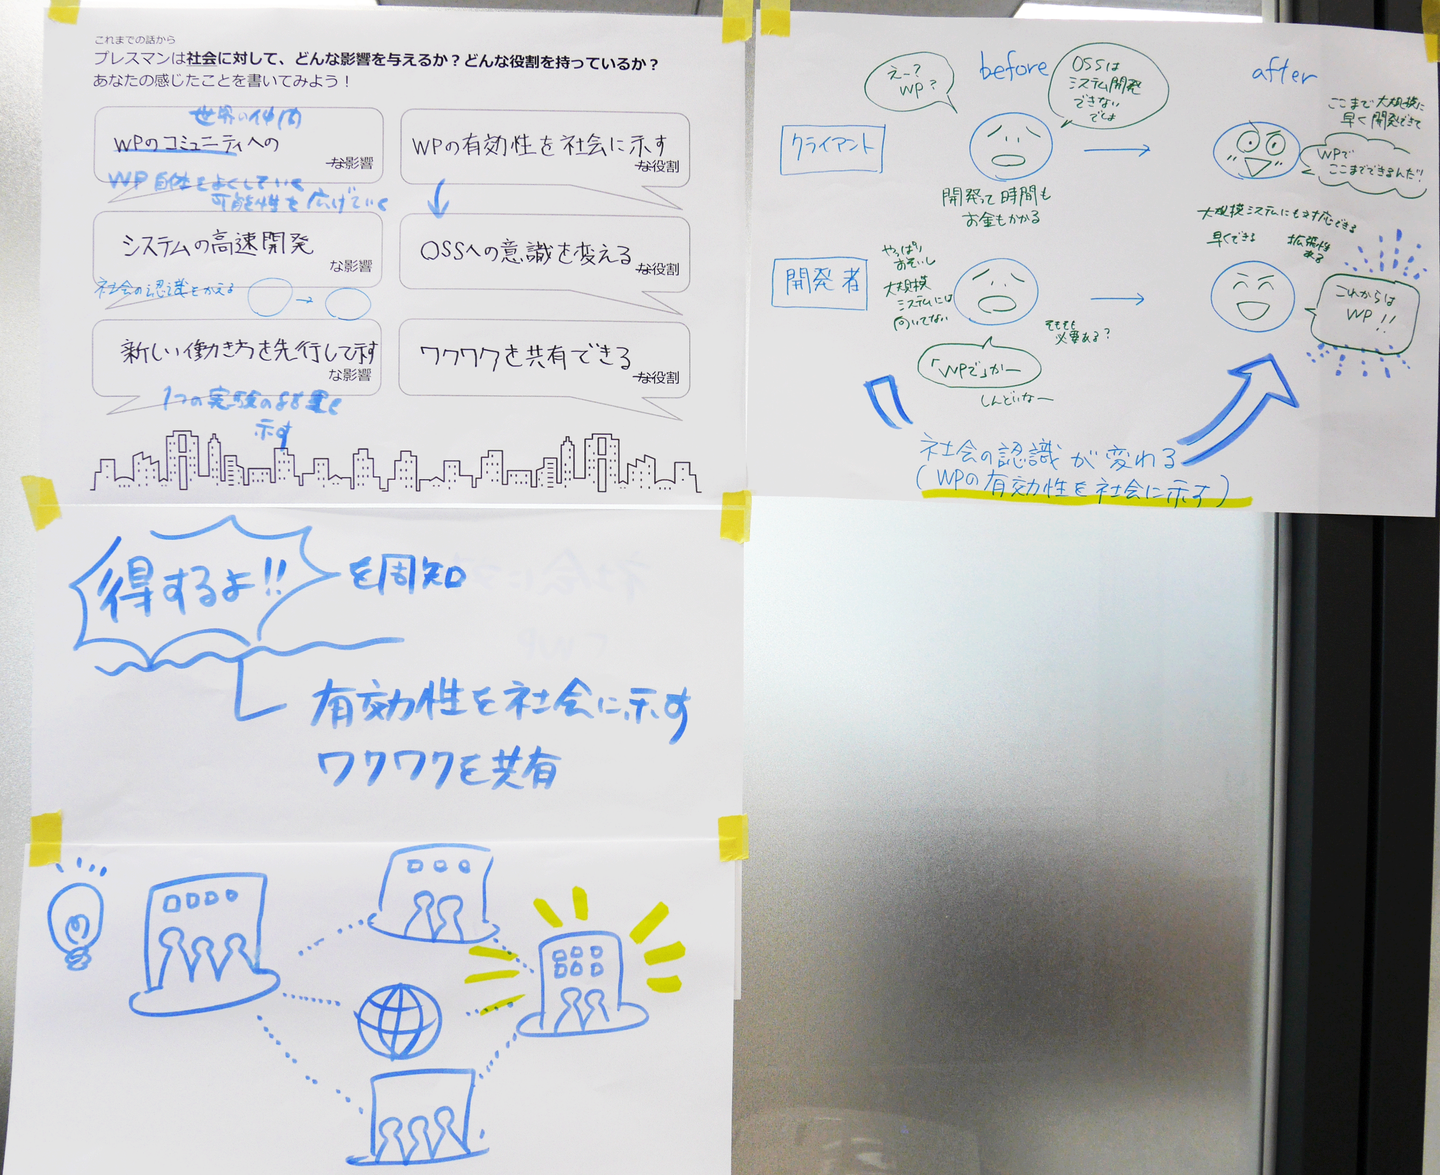 これまでの話から
プレスマンは社会に対して、どんな影響を与えるか？どんな役割を持っているか？
あなたの感じたことを書いてみよう！
世界の仲間
WPのコミュニティへの
な影響
WP自体をよくしていく
可能性を広げていく
システムの高速開発
な影響
社会の認識をかえる
新しい働き方を先行して示す
な影響
1つの実験の結果を
示す
WPの有効性を社会に示す
な役割
OSSへの意識を変える
な役割
ワクワクを共有できる
な役割
before
after
クライアント
えー？
WP？
OSSは
システム開発
できない
でしょ
開発って時間も
お金もかかる
ここまで大規模に
早く開発できて
WPで
ここまでできるんだ!!
開発者
やっぱり
おそいし
大規模
システムには
向いてない
そもそも
必要ある？
「WPで」かー
しんどいなー
大規模システムにも対応できる
早くできる
拡張性
ある
これからは
WP!!
社会の認識が変わる
(WPの有効性を社会に示す)
得するよ!!
を周知
有効性を社会に示す
ワクワクを共有